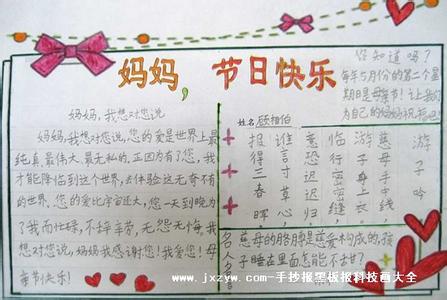 妈妈,节日快乐
妈妈,我想对您说
妈妈,我想对您说,您的爱是世界上最
纯真、最伟大、最无私的,正因为有了您,我
才能降临到这个世界,去体验这无奇不有
的世界。您的爱比宇宙还大,您一天到晚为
了我而忙碌,不辞辛苦,无怨无悔,我
想对您说,妈妈我感谢您!我爱您!母
亲节快乐!
你知道吗?
每年5月份的第二个星
期日是母亲节!让我们
为自己的妈妈祝福吧!
姓名 顾相伯
游子吟
慈母手中线
游子身上衣
临行密密缝
意恐迟迟归
谁言寸草心
报得三春晖
名人 慈母的胳膊是慈爱构成的,孩
子睡在里面怎能不甜?
www.jxzyw.com-手抄报黑板报科技画大全